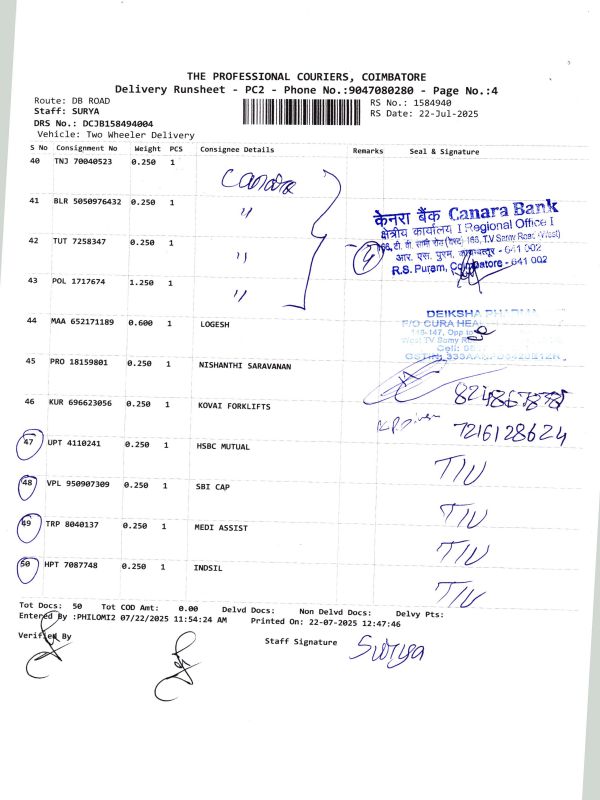 THE PROFESSIONAL COURIERS, COIMBATORE
Delivery Runsheet - PC2 - Phone No.:9047080280 - Page No.:4
Route: DB ROAD
Staff: SURYA
DRS No.: DCJB158494004
Vehicle: Two Wheeler Delivery
RS No.: 1584940
RS Date: 22-Jul-2025
S No Consignment No Weight PCS Consignee Details Remarks Seal & Signature
40 TNJ 70040523 0.250 1 Canara
41 BLR 5050976432 0.250 1 "
42 TUT 7258347 0.250 1 "
43 POL 1717674 1.250 1 "
4
केनरा बैंक Canara Bank
क्षेत्रीय कार्यालय I Regional Office I
166, टी. वी. सामी रोड (वेस्ट) 166, T.V Samy Road (West)
आर. एस. पुरम, कोयम्बत्तूर - 641 002
R.S. Puram, Coimbatore - 641 002
44 MAA 652171189 0.600 1 LOGESH
DEIKSHA
F/O CURA
45 PRO 18159801 0.250 1 NISHANTHI SARAVANAN
46 KUR 696623056 0.250 1 KOVAI FORKLIFTS 7216128624
47 UPT 4110241 0.250 1 HSBC MUTUAL T/U
48 VPL 950907309 0.250 1 SBI CAP T/U
49 TRP 8040137 0.250 1 MEDI ASSIST T/U
50 HPT 7087748 0.250 1 INDSIL T/U
Tot Docs: 50 Tot COD Amt: 0.00 Delvd Docs: Non Delvd Docs: Delvy Pts:
Entered By :PHILOMI2 07/22/2025 11:54:24 AM Printed On: 22-07-2025 12:47:46
Verified By
Staff Signature Surya